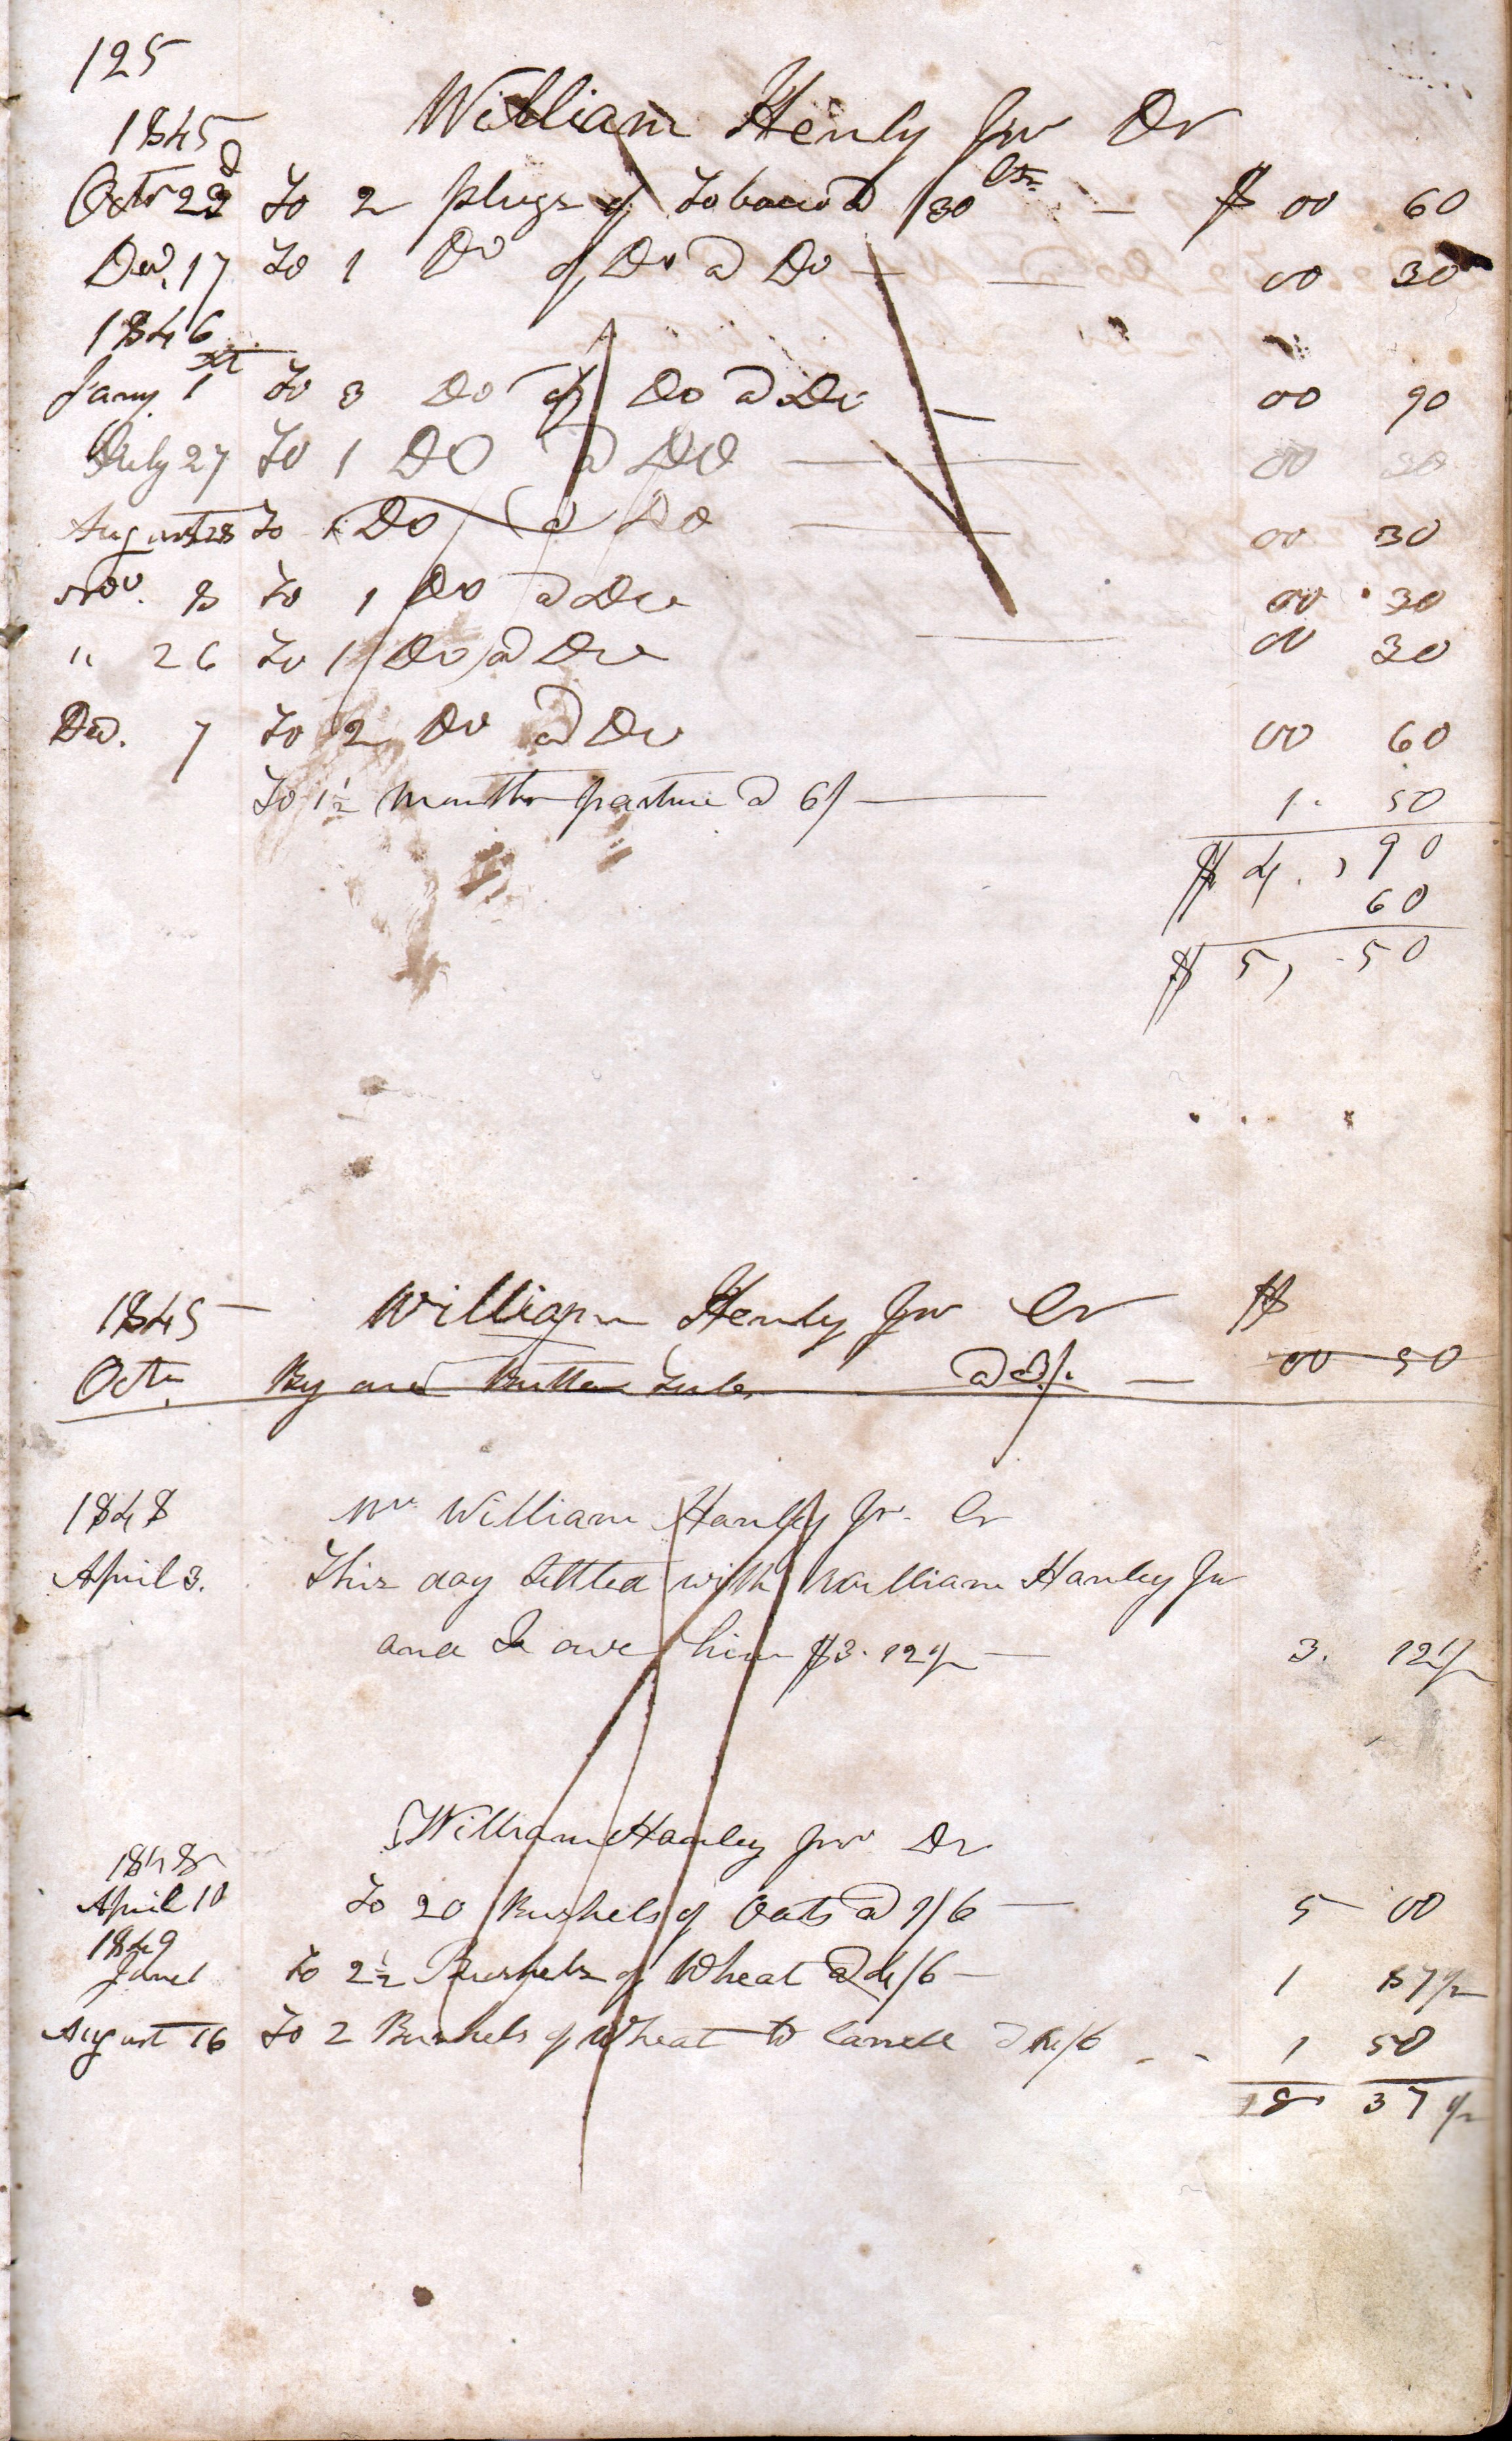 125
William Henly Jnr Dr
1845
Octr 22d To 2 plugs of Tobacco @ 30 cts — $ 00 60
Decr, 17 To 1 Do of Do @ Do — 00 30
1846
Jany 1st To 3 Do of Do @ Do — 00 90
July 27 To 1 Do @ Do — 00 30
August 28 To 1 Do @ Do — 00 30
Nov. 8 To 1 Do @ Do 00 30
" 26 To 1 Do @ Do — 00 30
Decr. 7 To 2 Do @ Do 00 60
To 1½ Months pasture @ 6/ — 1. 50
$ 4., 90
60
$ 5, 50
1845 William Henly Jnr Cr $
Octr By one Butter Tub @ 3/. — 00 50
1848 Mr William Hanley Jr. Cr
April 3. This day Settled with William Hanley Jr
and I owe him $3. 12½ — 3. 12½
William Hanley Jnr Dr
1848
April 10 To 20 Bushels of Oats @ 2/6 — 5 00
1849
June 1 To 2½ Bushels of Wheat @ 4/6 — 1 87½
August 16 To 2 Bushels of Wheat to @ 4/6 - - 1 50
8 37½